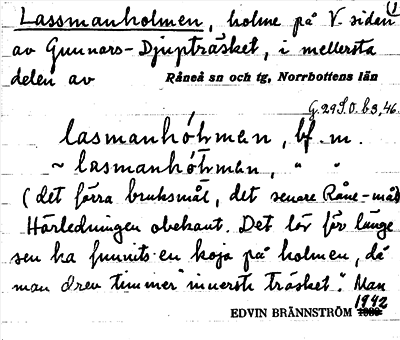 Lassmanholmen, holme på V. sidan 1)
av Gunnars-Djupträsket, i mellersta
delen av Råneå sn och tg, Norrbottens län
G. 29 S.O. b 3, 46.
lasmanhólman, bf. m.
~ lasmanhólman, " "
(det förra bruksmål, det senare Råne-mål)
Härledningen obekant. Det lär för länge
sen ha funnits en koja på holmen, då
man drev timmer "i nerste träsket". Man
EDVIN BRÄNNSTRÖM 1942